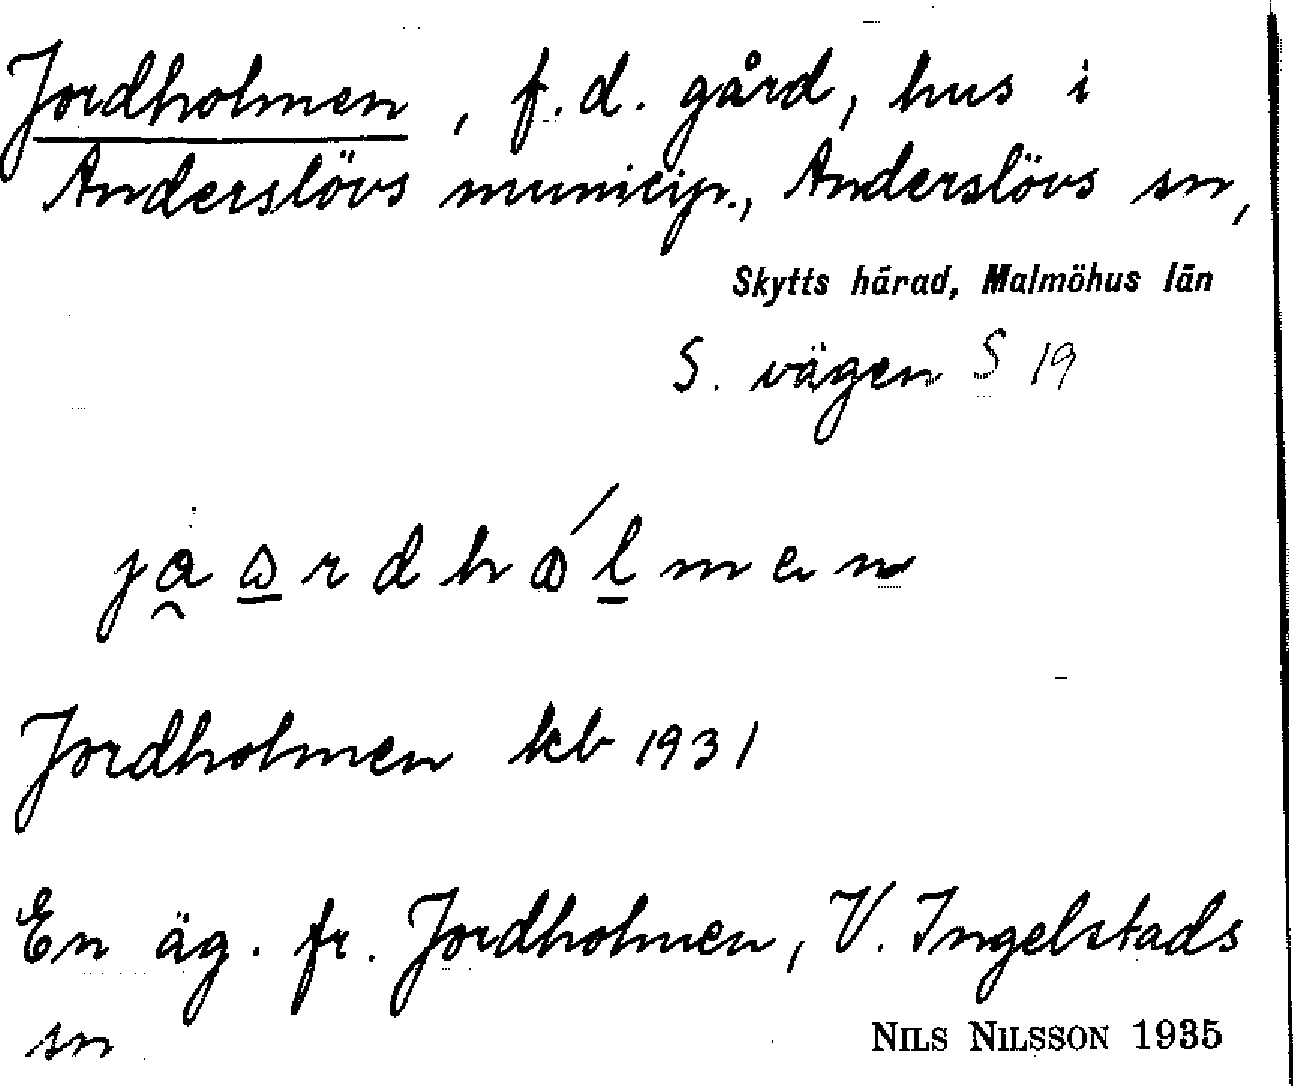 Jordholmen, f.d. gård, hus i
Anderslövs municip., Anderslövs sn,
Skytts härad, Malmöhus län
S. vägen S 19
Jordholmen kb 1931
En äg. fr. Jordholmen, V. Ingelstads
sn
NILS NILSSON 1935